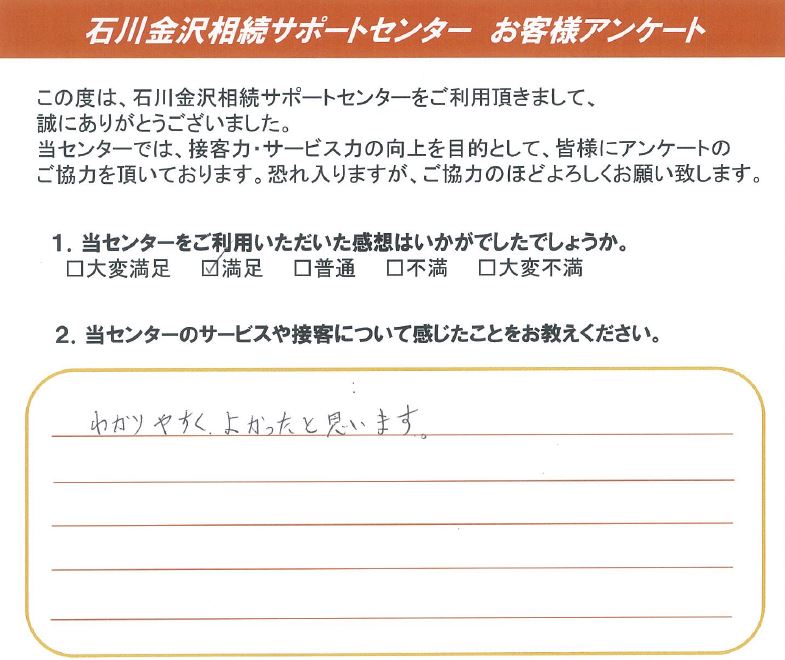 石川金沢相続サポートセンター お客様アンケート
この度は、石川金沢相続サポートセンターをご利用頂きまして、
誠にありがとうございました。
当センターでは、接客力・サービス力の向上を目的として、皆様にアンケートの
ご協力を頂いております。恐れ入りますが、ご協力のほどよろしくお願い致します。
1. 当センターをご利用いただいた感想はいかがでしたでしょうか。
□大変満足 ☑満足 □普通 □不満 □大変不満
2. 当センターのサービスや接客について感じたことをお教えください。
わかりやすく、よかったと思います。